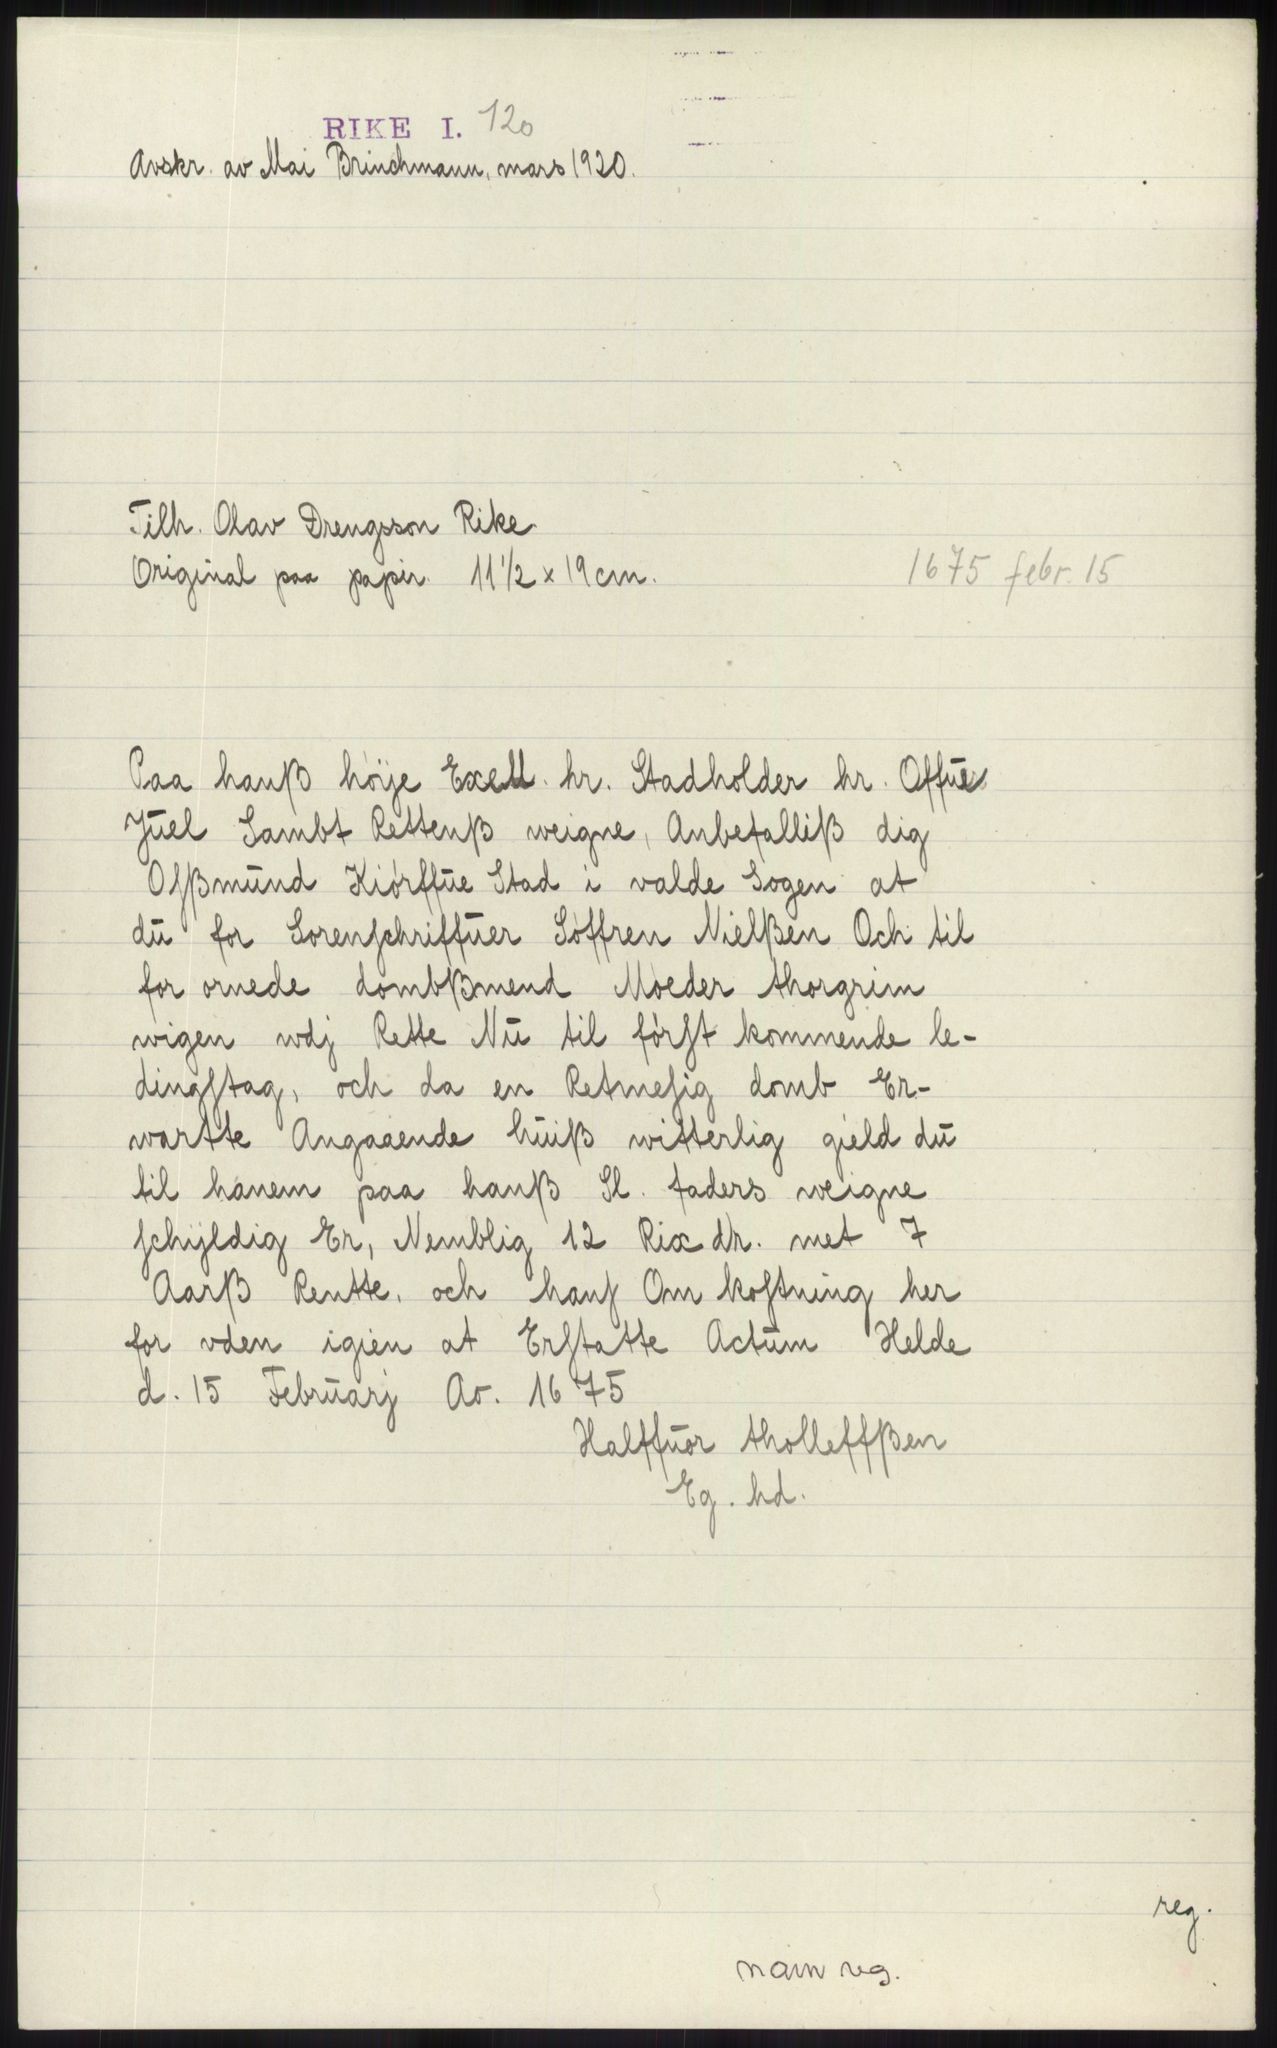 RIKE I. 120
Avskr. av Mai Brinchmann, mars 1920.
Tilh. Olav Drengsson Rike
Original paa papir. 11 1/2 x 19 cm.
1675 febr. 15
Paa hanß höije Exell. hr. Stadholder hr. Offue
Juel Sambt Rettenß weigne, Anbefalliß dig
Oſßmund Kiörffue Stad i valde Sogen at
du for Sorenſchriffuer Söffren Nielßen Och til
for ornede dombßmend Möeder thorgrim
wigen wdj Rette Nu til förſt kommende le-
dingſtag, och da en Retmeſig domb Er-
wartte Angaaende huiß witterlig gield du
til hanem paa hanß Sl. faders weigne
ſchyldig Er, Nemblig 12 Rix dr. met 7
Aarß Rentte, och hanſ Om koſtning her
for vden igien at Erſtatte Actum Helde
d. 15 Februarj Ao. 1675
Halffuor tholleffßen
Eg. hd.
reg.
navn reg.